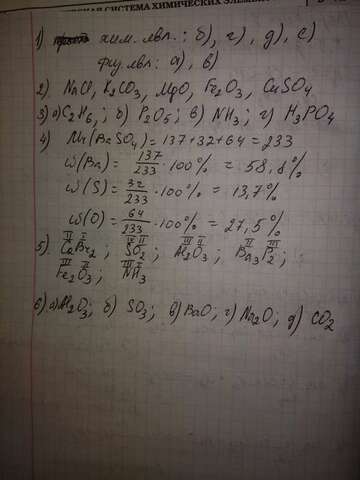 СИСТЕМА ХИМИЧЕСКИХ ЭЛЕМЕ
1) хим. явл.: б), г), д), е)
физ явл: а), в)
2). NaCl, K2CO3, MgO, Fe2O3, CuSO4
3) а) C2H6; б) P2O5; в) NH3; г) H3PO4
4) Mr(BaSO4) = 137+32+64 = 233
ω(Ba) = 137/233 · 100% = 58,8%
ω(S) = 32/233 · 100% = 13,7%
ω(O) = 64/233 · 100% = 27,5%
II I IV II III II II III
5). CaBr2; SO2; Al2O3; Ba3P2;
III II III I
Fe2O3; NH3
6). а) Al2O3; б) SO3; в) BaO; г) Na2O; д) CO2